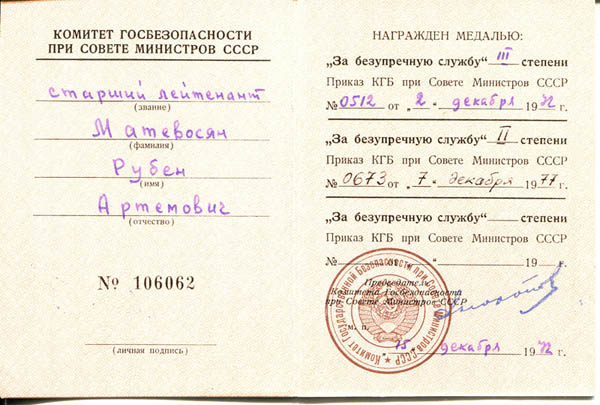 КОМИТЕТ ГОСБЕЗОПАСНОСТИ
ПРИ СОВЕТЕ МИНИСТРОВ СССР
старший лейтенант
(звание)
Матевосян
(фамилия)
Рубен
(имя)
Артемович
(отчество)
№ 106062
(личная подпись)
НАГРАЖДЕН МЕДАЛЬЮ:
„За безупречную службу“ III степени
Приказ КГБ при Совете Министров СССР
№ 0512 от „2“ декабря 1972 г.
„За безупречную службу“ II степени
Приказ КГБ при Совете Министров СССР
№ 0673 от „7“ декабря 1977 г.
„За безупречную службу“ степени
Приказ КГБ при Совете Министров СССР
№ от „ “ 19 г.
Председатель
Комитета Госбезопасности
при Совете Министров СССР
м. п.
„15“ декабря 1972 г.
Комитет Государственной Безопасности при Совете Министров СССР